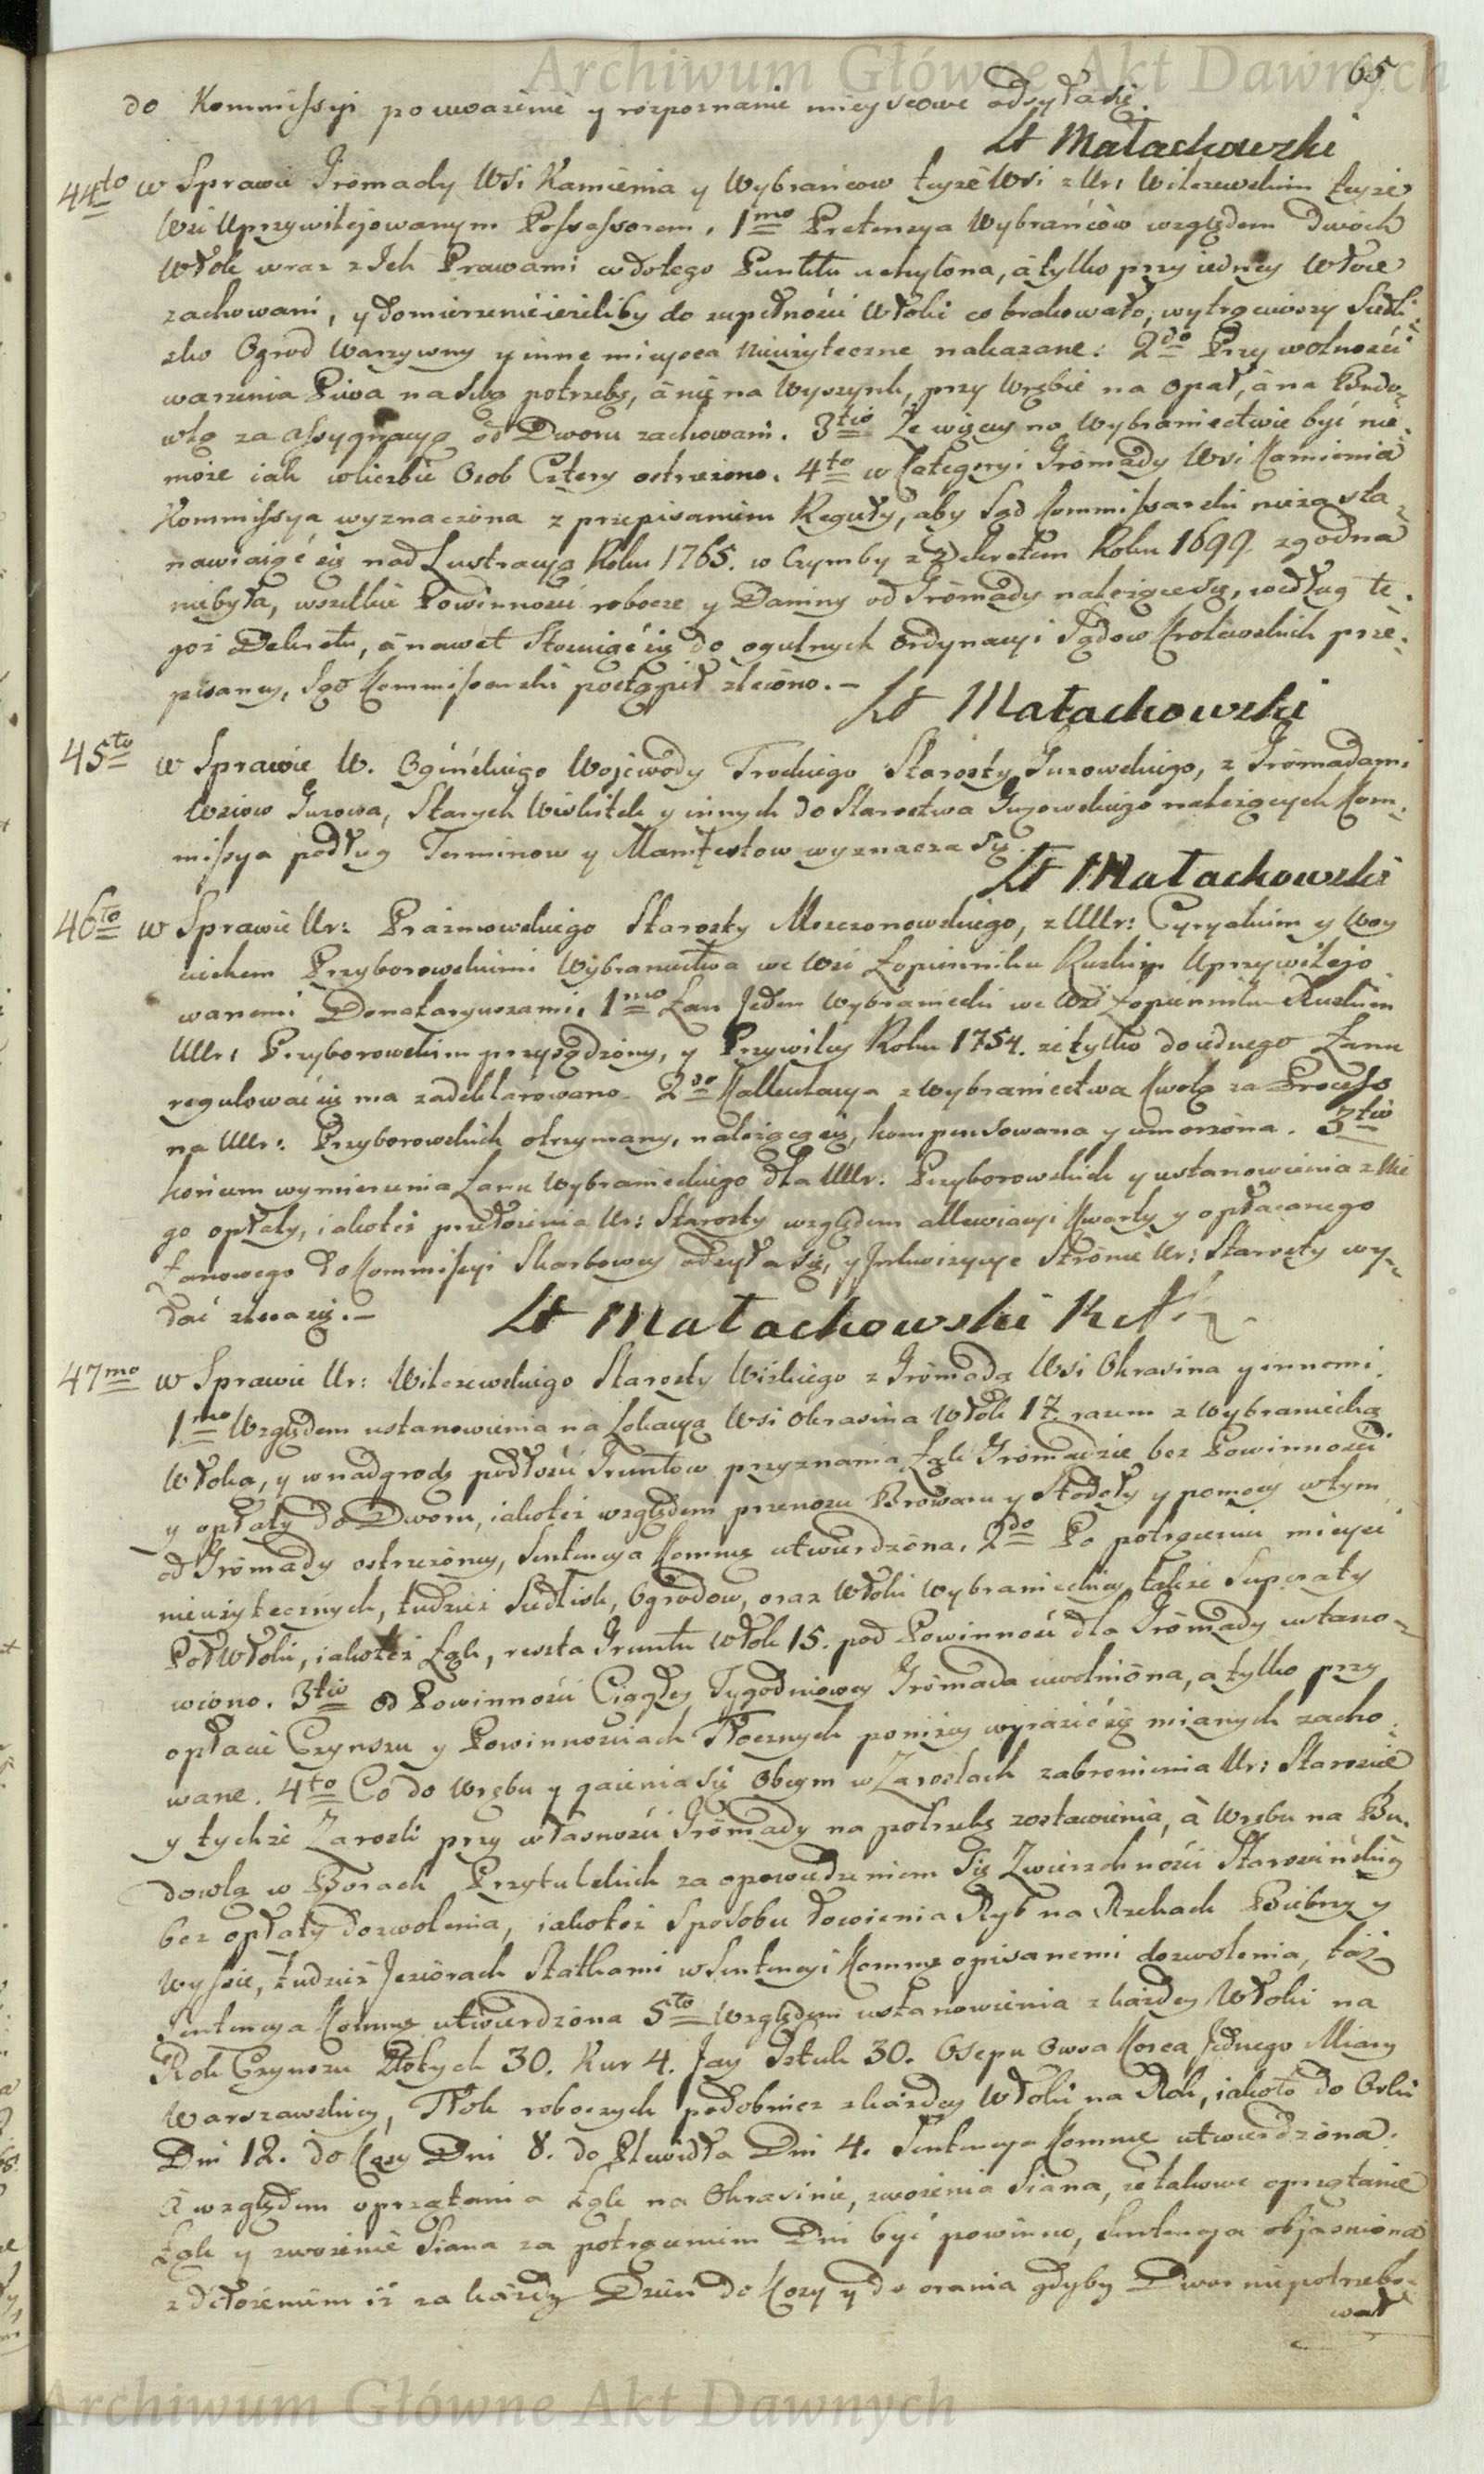 Archiwum Główne Akt Dawnych
65
do Kommissyi poważenie y rozpoznanie mieyscowe odsyła się.
St Małachowski
44to w Sprawie Gromady Wsi Kamienia y Wybrańcow teyże Wsi z Ur: Wilczewskim teyże
Wsi Uprzywilejowanym Possessorem, 1mo Pretensya Wybrańców względem Dwóch
Włok wraz z Ich Prawami co do tego Punktu uchylona, á tylko przy iedney Włoce
zachowani, y domierzenie ieżeliby do zupełności Włoki co brakowało, wytrąciwszy Siedli-
sko Ogrod Warzywny y inne mieysca nieużyteczne nakazane. 2do Przy wolności
warzenia Piwa na swą potrzebę, á nie na Wyszynk, przy Wrębie na Opał, á na Budo-
wlą za Assygnacyą od Dworu zachowani. 3tio Że więcey na Wybraniectwie być nie
może iak w liczbie Osob Cztery ostrzeżono. 4to w Kategoryi Gromady Wsi Kamienia
Kommissya wyznaczona z przepisaniem Reguły, aby Sąd Kommissarski nie zasta-
nawiaiąc się nad Lustracyą Roku 1765. w Czymby z Dekretem Roku 1699 zgodna
niebyła, wszelkie Powinności robocze y Daniny od Gromady należące się, według te-
goż Dekretu, á nawet Stosuiąc się do ogulnych Ordynacyi Sądow Krolewskich prze-
pisaney, Sąd Kommissarski postąpił zlecono. –
St Małachowski
45to w Sprawie W. Ogińskiego Wojewody Trockiego Starosty Guzowskiego, z Gromadami
Wsiow Guzowa, Starych Wiskitek y innych do Starostwa Guzowskiego należących Kom-
missya podług Terminow y Manifestow wyznacza się.
St Małachowski
46to w Sprawie Ur: Prażmowskiego Starosty Mszczonowskiego, z UUr: Cyryakim y Woy
ciechem Przyborowskiemi Wybraniectwa we Wsi Łopienniku Ruskim Uprzywilejo
wanemi Donataryuszami, 1mo Łan Jeden Wybraniecki we Wsi Łopienniku Ruskim
UUr: Przyborowskim przysądzony, y Przywiley Roku 1754. że tylko do iednego Łanu
regulować się ma zadeklarowano. 2do Kalkulacya z Wybraniectwa Kwotą za Process
na UUr: Przyborowskich otrzymany, należącą się, kompensowana y umorzona. 3tio
końcem wymierzenia Łanu Wybranieckiego dla UUr: Przyborowskich y ustanowienia z Nie
go opłaty, iakoteż przełożenia Ur: Starosty względem allewiacyi Kwarty y opłacanego
Łanowego do Kommissyi Skarbowey odsyła się, y Inkwizycye Stronie Ur: Starosty wy-
dać zleca się. –
St Małachowski
47mo w Sprawie Ur: Wilczewskiego Starosty Wizkiego z Gromadą Wsi Okrasina y innemi.
1mo Względem ustanowienia na Lokacyą Wsi Okrasina Włok 17 razem z Wybraniecką
Włoką, y w nadgrodę podłości Gruntow przyznania Łąk Gromadzie bez Powinności
y opłaty do Dworu, iakoteż względem przenosu Browaru y Stodoły y pomocy w tym
od Gromady ostrzeżoney, Sentencya Kommss utwierdzona. 2do Po potrąceniu mieysc
nieużytecznych, tudzież Siedlisk, Ogrodow, oraz Włoki Wybranieckiey, także Superaty
Poł Włoki, iakoteż Łąk, reszta Gruntu Włok 15. pod Powinność dla Gromady ustano-
wiono. 3tio od Powinności Ciągłey Tygodniowey Gromada uwolniona, a tylko przy
opłacie Czynszu y Powinnościach Tłocznych poniżey wyrazić się mianych zacho-
wane. 4to Co do Wrębu y gaienia się Obcym w Zaroslach zabronienia Ur: Staroscie
y tychże Zarosli przy własności Gromady na potrzebę zostawienia, à Wrębu na Bu-
dowlą w Borach Przytulskich za opowiedzeniem się Zwierzchności Starościńskiey
bez opłaty dozwolenia, iakoteż Sposobu łowienia Ryb na Rzekach Biebrzy y
Wyssie, tudzież Jeziorach Statkami w Sentencyi Kommss opisanemi dozwolenia, taż
Sentencya Kommss utwierdzona 5to Względem ustanowienia z każdey Włoki na
Rok Czynszu Złotych 30. Kur 4. Jay Sztuk 30. Osepu Owsa Korca Jednego Miary
Warszawskiey, Tłok roboczych podobnież z każdey Włoki na Rok, iakoto do Orki
Dni 12. do Kosy Dni 8. do Plewidła Dni 4. Sentencya Kommss utwierdzona.
á względem oprzątania Łąk na Okrasinie, zwożenia Siana, że takowe oprzątanie
Łąk y zwożenie Siana za potrąceniem Dni być powinno, Sentencya objasniona
z dołożeniem iż za każdy Dzień do Kosy y do orania gdyby Dwor niepotrzebo-
wał
Archiwum Główne Akt Dawnych